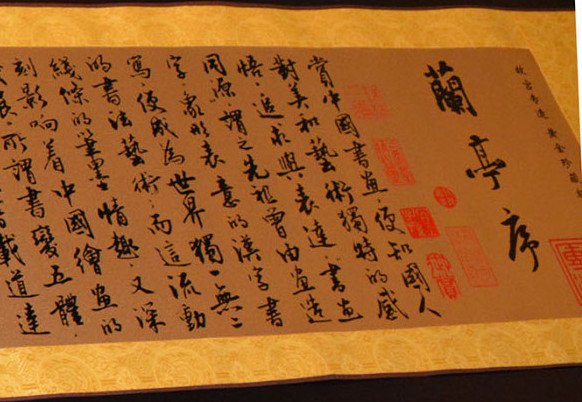 故宮 黃金珍藏
蘭亭序
賞中國書畫,便知國人
對美和藝術獨特的感
悟、追求與表達。書畫
同源,謂之先祖曾由畫造
字,象形表意的漢字書
寫,便成為世界獨一無二
的書法藝術;而這流動
綫條的筆墨情趣,又深
刻影响着中國繪畫的
展。所謂書變五體,
載道達